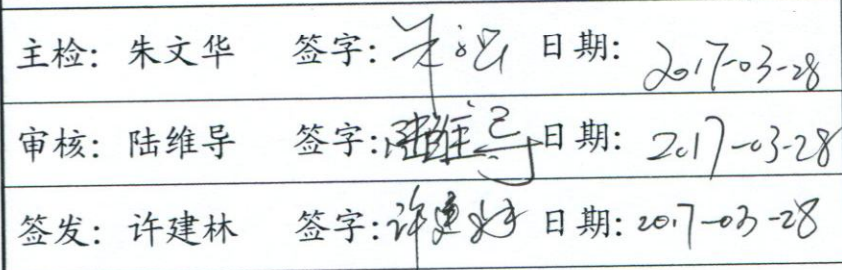 主检: 朱文华 签字: 日期: 2017-03-28
审核: 陆维导 签字: 陆维导 日期: 2017-03-28
签发: 许建林 签字: 许建林 日期: 2017-03-28